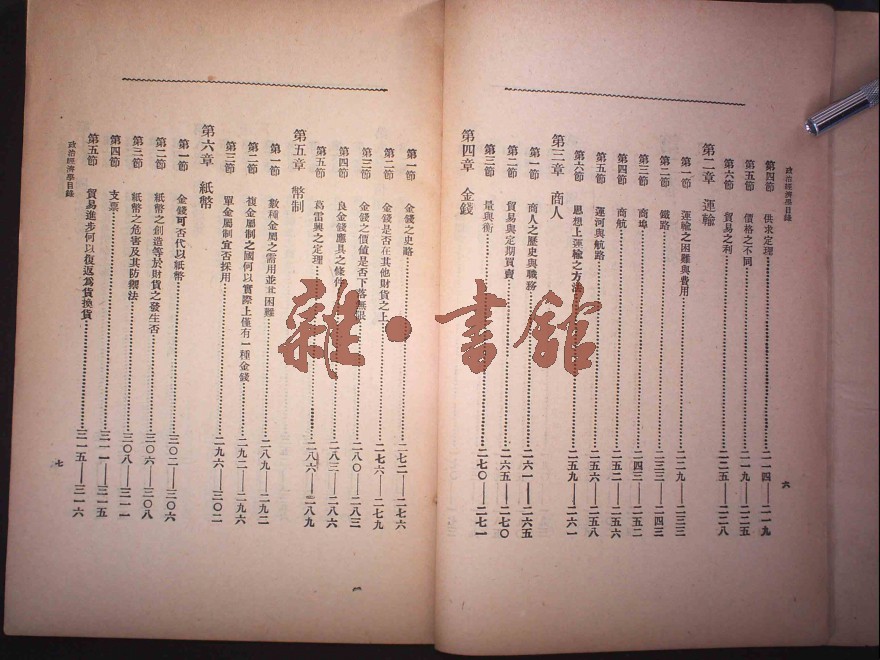 政治經濟學目錄
第四節 供求定理……二一四—二一九
第五節 價格之不同……二一九—二二五
第六節 貿易之利……二二五—二二八
第二章 運輸
第一節 運輸之困難與費用……二二九—二三三
第二節 鐵路……二三三—二四三
第三節 商埠……二四三—二五二
第四節 商航……二五二—二五六
第五節 運河與航路……二五六—二五八
第六節 思想上運輸之方法……二五九—二六一
第三章 商人
第一節 商人之歷史與職務……二六一—二六五
第二節 貿易與定期買賣……二六五—二七〇
第三節 量與衡……二七〇—二七一
第四章 金錢
六
第一節 金錢之史略……二七二—二七六
第二節 金錢是否在其他財貨之上……二七六—二七九
第三節 金錢之價値是否下落無限……二八〇—二八三
第四節 良金錢應具之條件……二八三—二八六
第五節 葛雷興之定理……二八六—二八九
第五章 幣制
第一節 數種金屬之需用並其困難……二八九—二九二
第二節 複金屬制之國何以實際上僅有一種金錢……二九二—二九六
第三節 單金屬制宜否採用……二九六—三〇二
第六章 紙幣
第一節 金錢可否代以紙幣……三〇二—三〇六
第二節 紙幣之創造等於財貨之發生否……三〇六—三〇八
第三節 紙幣之危害及其防禦法……三〇八—三一一
第四節 支票……三一一—三一五
第五節 貿易進步何以復返爲貨換貨……三一五—三一六
政治經濟學目錄
七
雜·書館